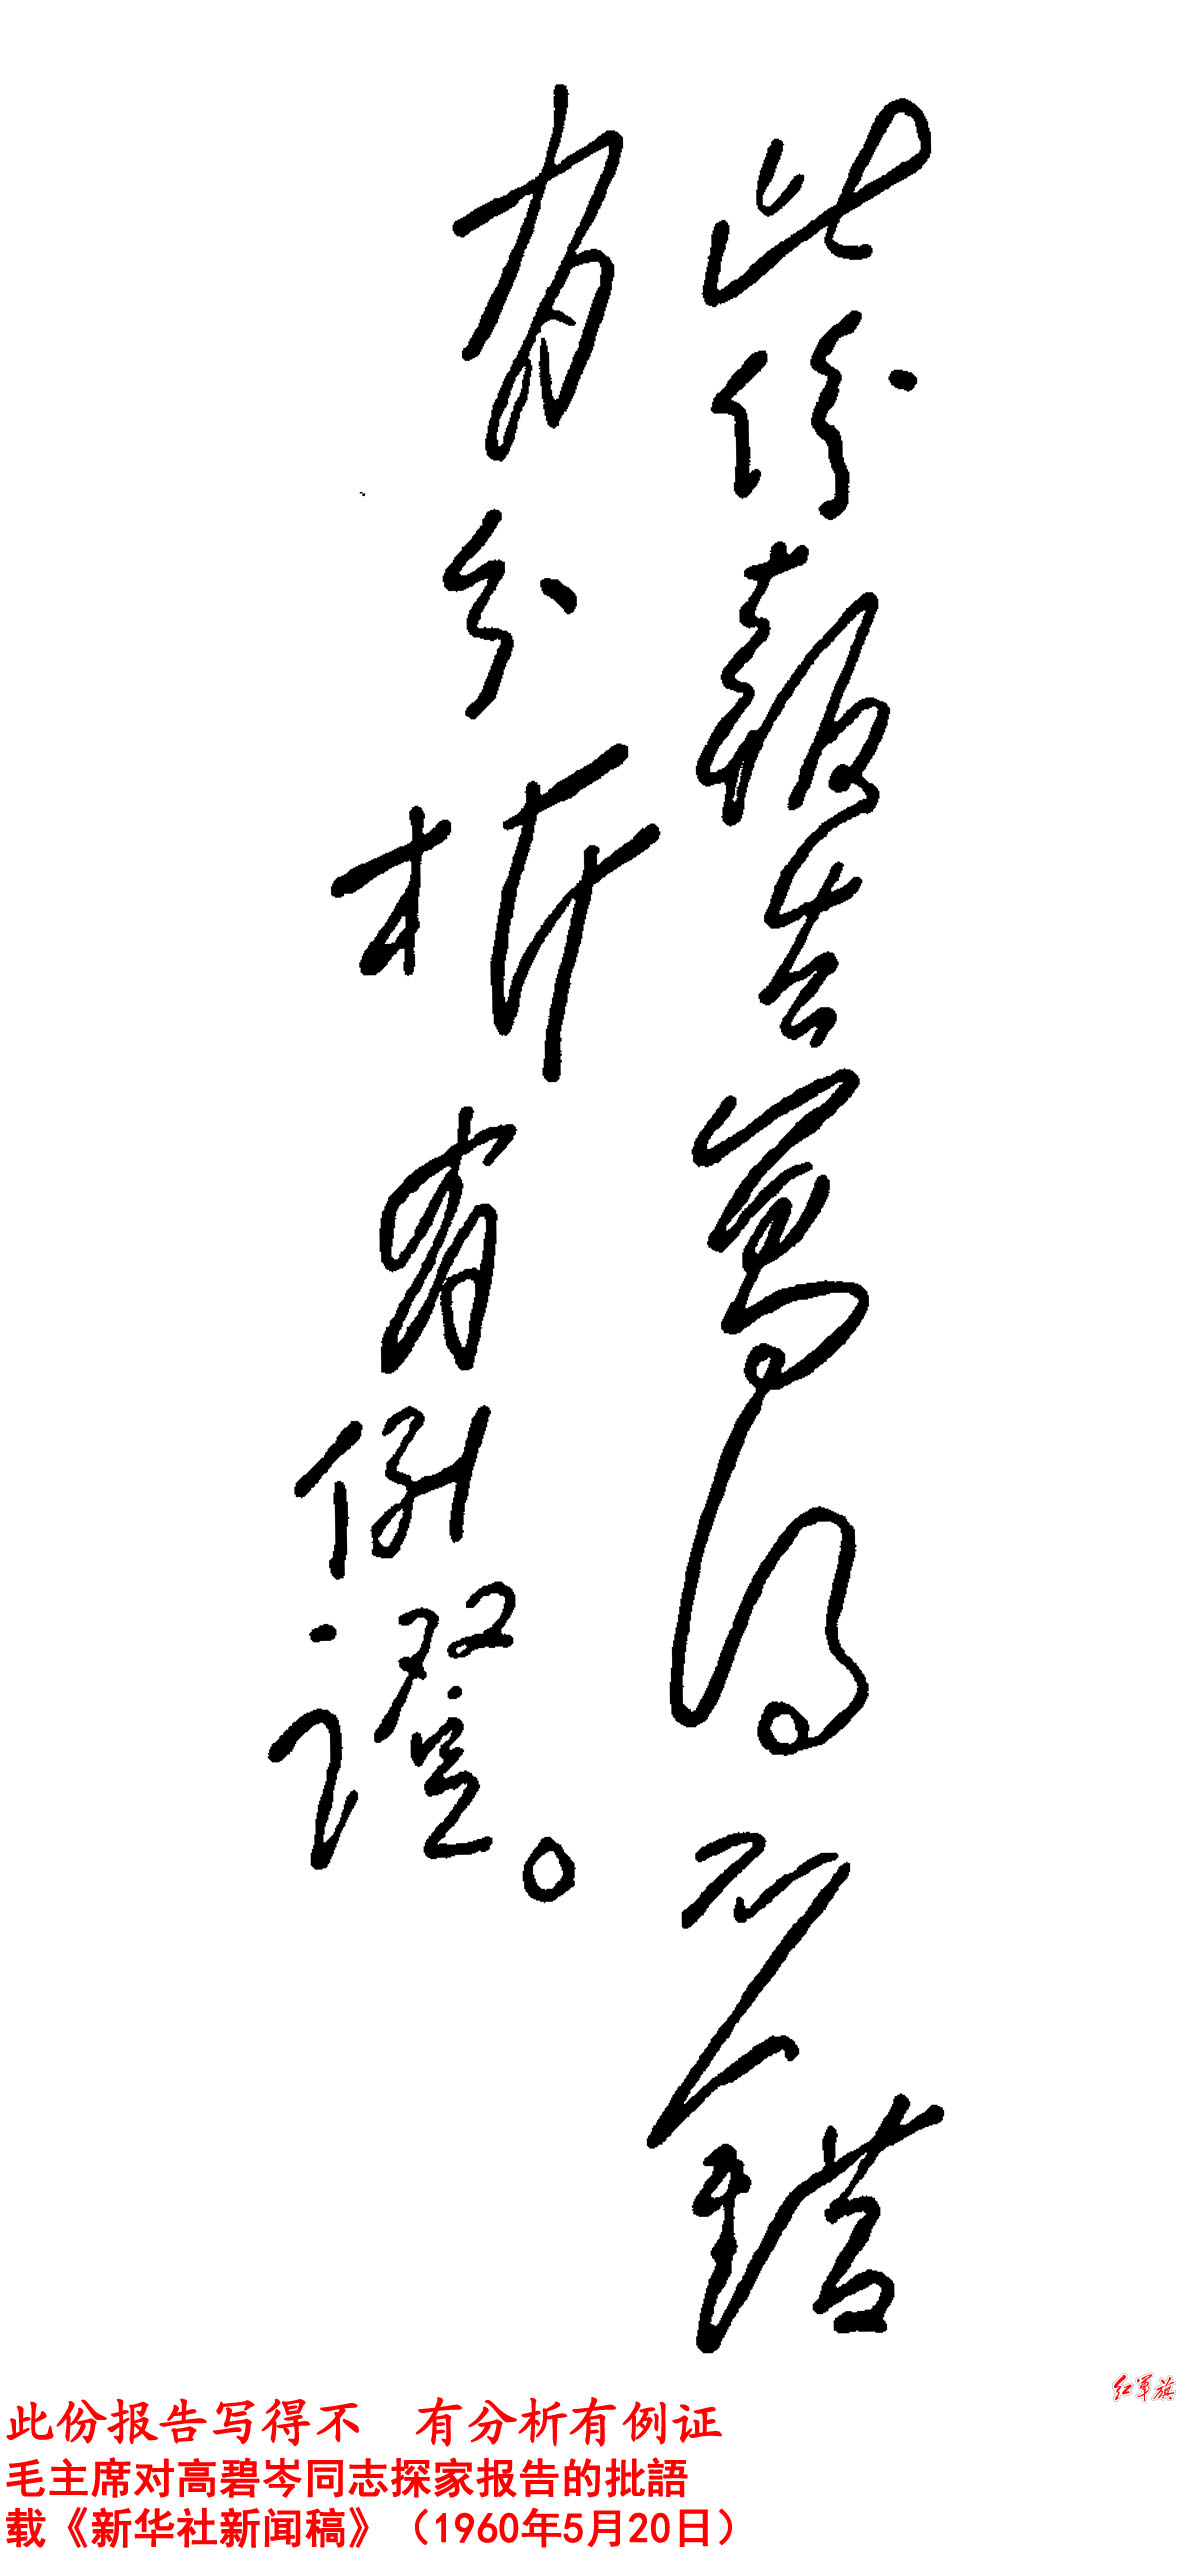 此份報告寫得不錯
有分析有例證。
红军旗
此份报告写得不 有分析有例证
毛主席对高碧岑同志探家报告的批語
载《新华社新闻稿》（1960年5月20日）